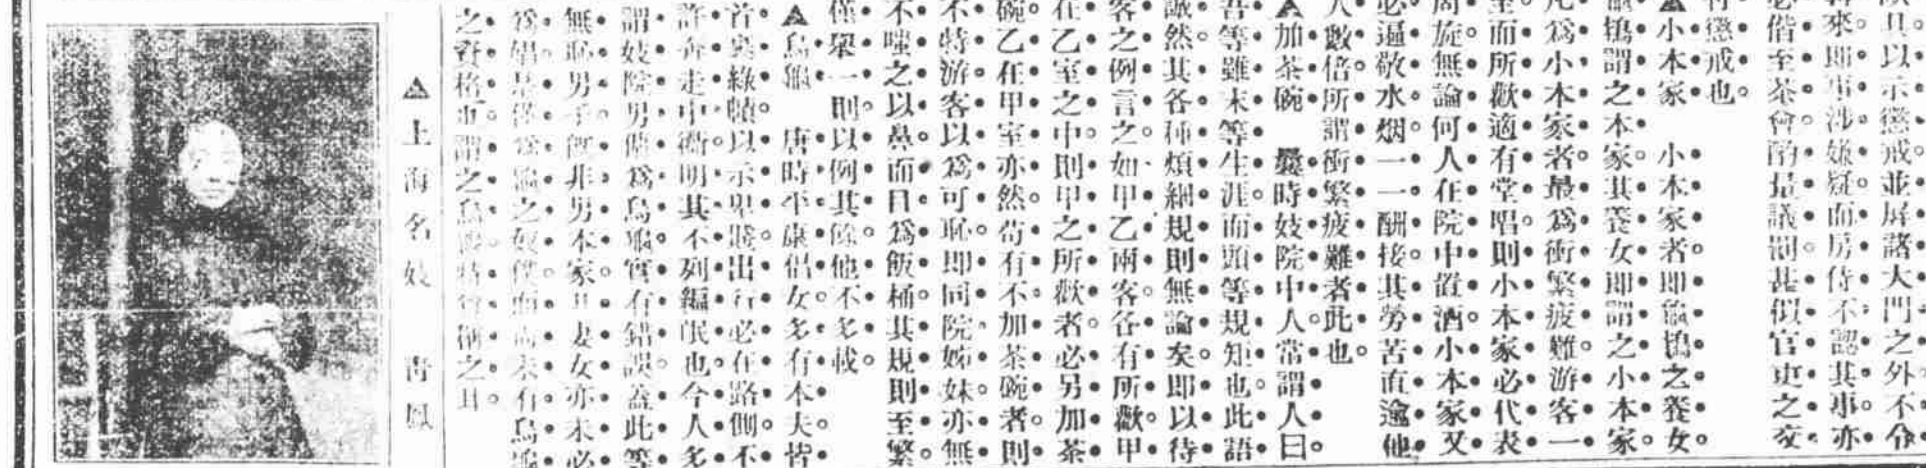 以示懲戒並屏諸大門之外。不合
來即事涉嫌疑。而房侍不認其事。亦
必偕至茶會酌量議罰。甚似官吏之交
懲戒也。
▲小本家　小本家者。即鴇之養女
鴇謂之本家。其養女即謂之小本家。
凡爲小本家者。最爲衝繁疲難。游客一
至。而所歡適有堂唱。則小本家必代表
周旋。無論何人在院中置酒。小本家又
必遍敬水烟。一一酬接。其勞苦直逾他
人數倍。所謂衝繁疲難者此也。
▲加茶碗　曩時妓院中人。常謂人曰。
吾等雖末等生涯。而頭等規矩也。此語
誠然。其各種煩細規則無論矣。即以待
客之例言之。如甲乙兩客。各有所歡。甲
在乙室之中。則甲之所歡者。必另加茶
碗。乙在甲室亦然。苟有不加茶碗者。則
不特游客以爲可恥。即同院姊妹。亦無
不嗤之以鼻。而目爲飯桶。其規則至繁。
僅舉一則。以例其餘。他不多載。
▲烏龜　唐時平康侶女。多有本夫。皆
首裹綠幘。以示卑賤。出行必在路側。不
許奔走中衢。明其不列編氓也。今人多
謂妓院男僕爲烏龜。實有錯誤。蓋此等
無恥男子。旣非男本家。且妻女亦未必
爲娼。
之資格也。謂之烏
▲上海名妓　青鳳